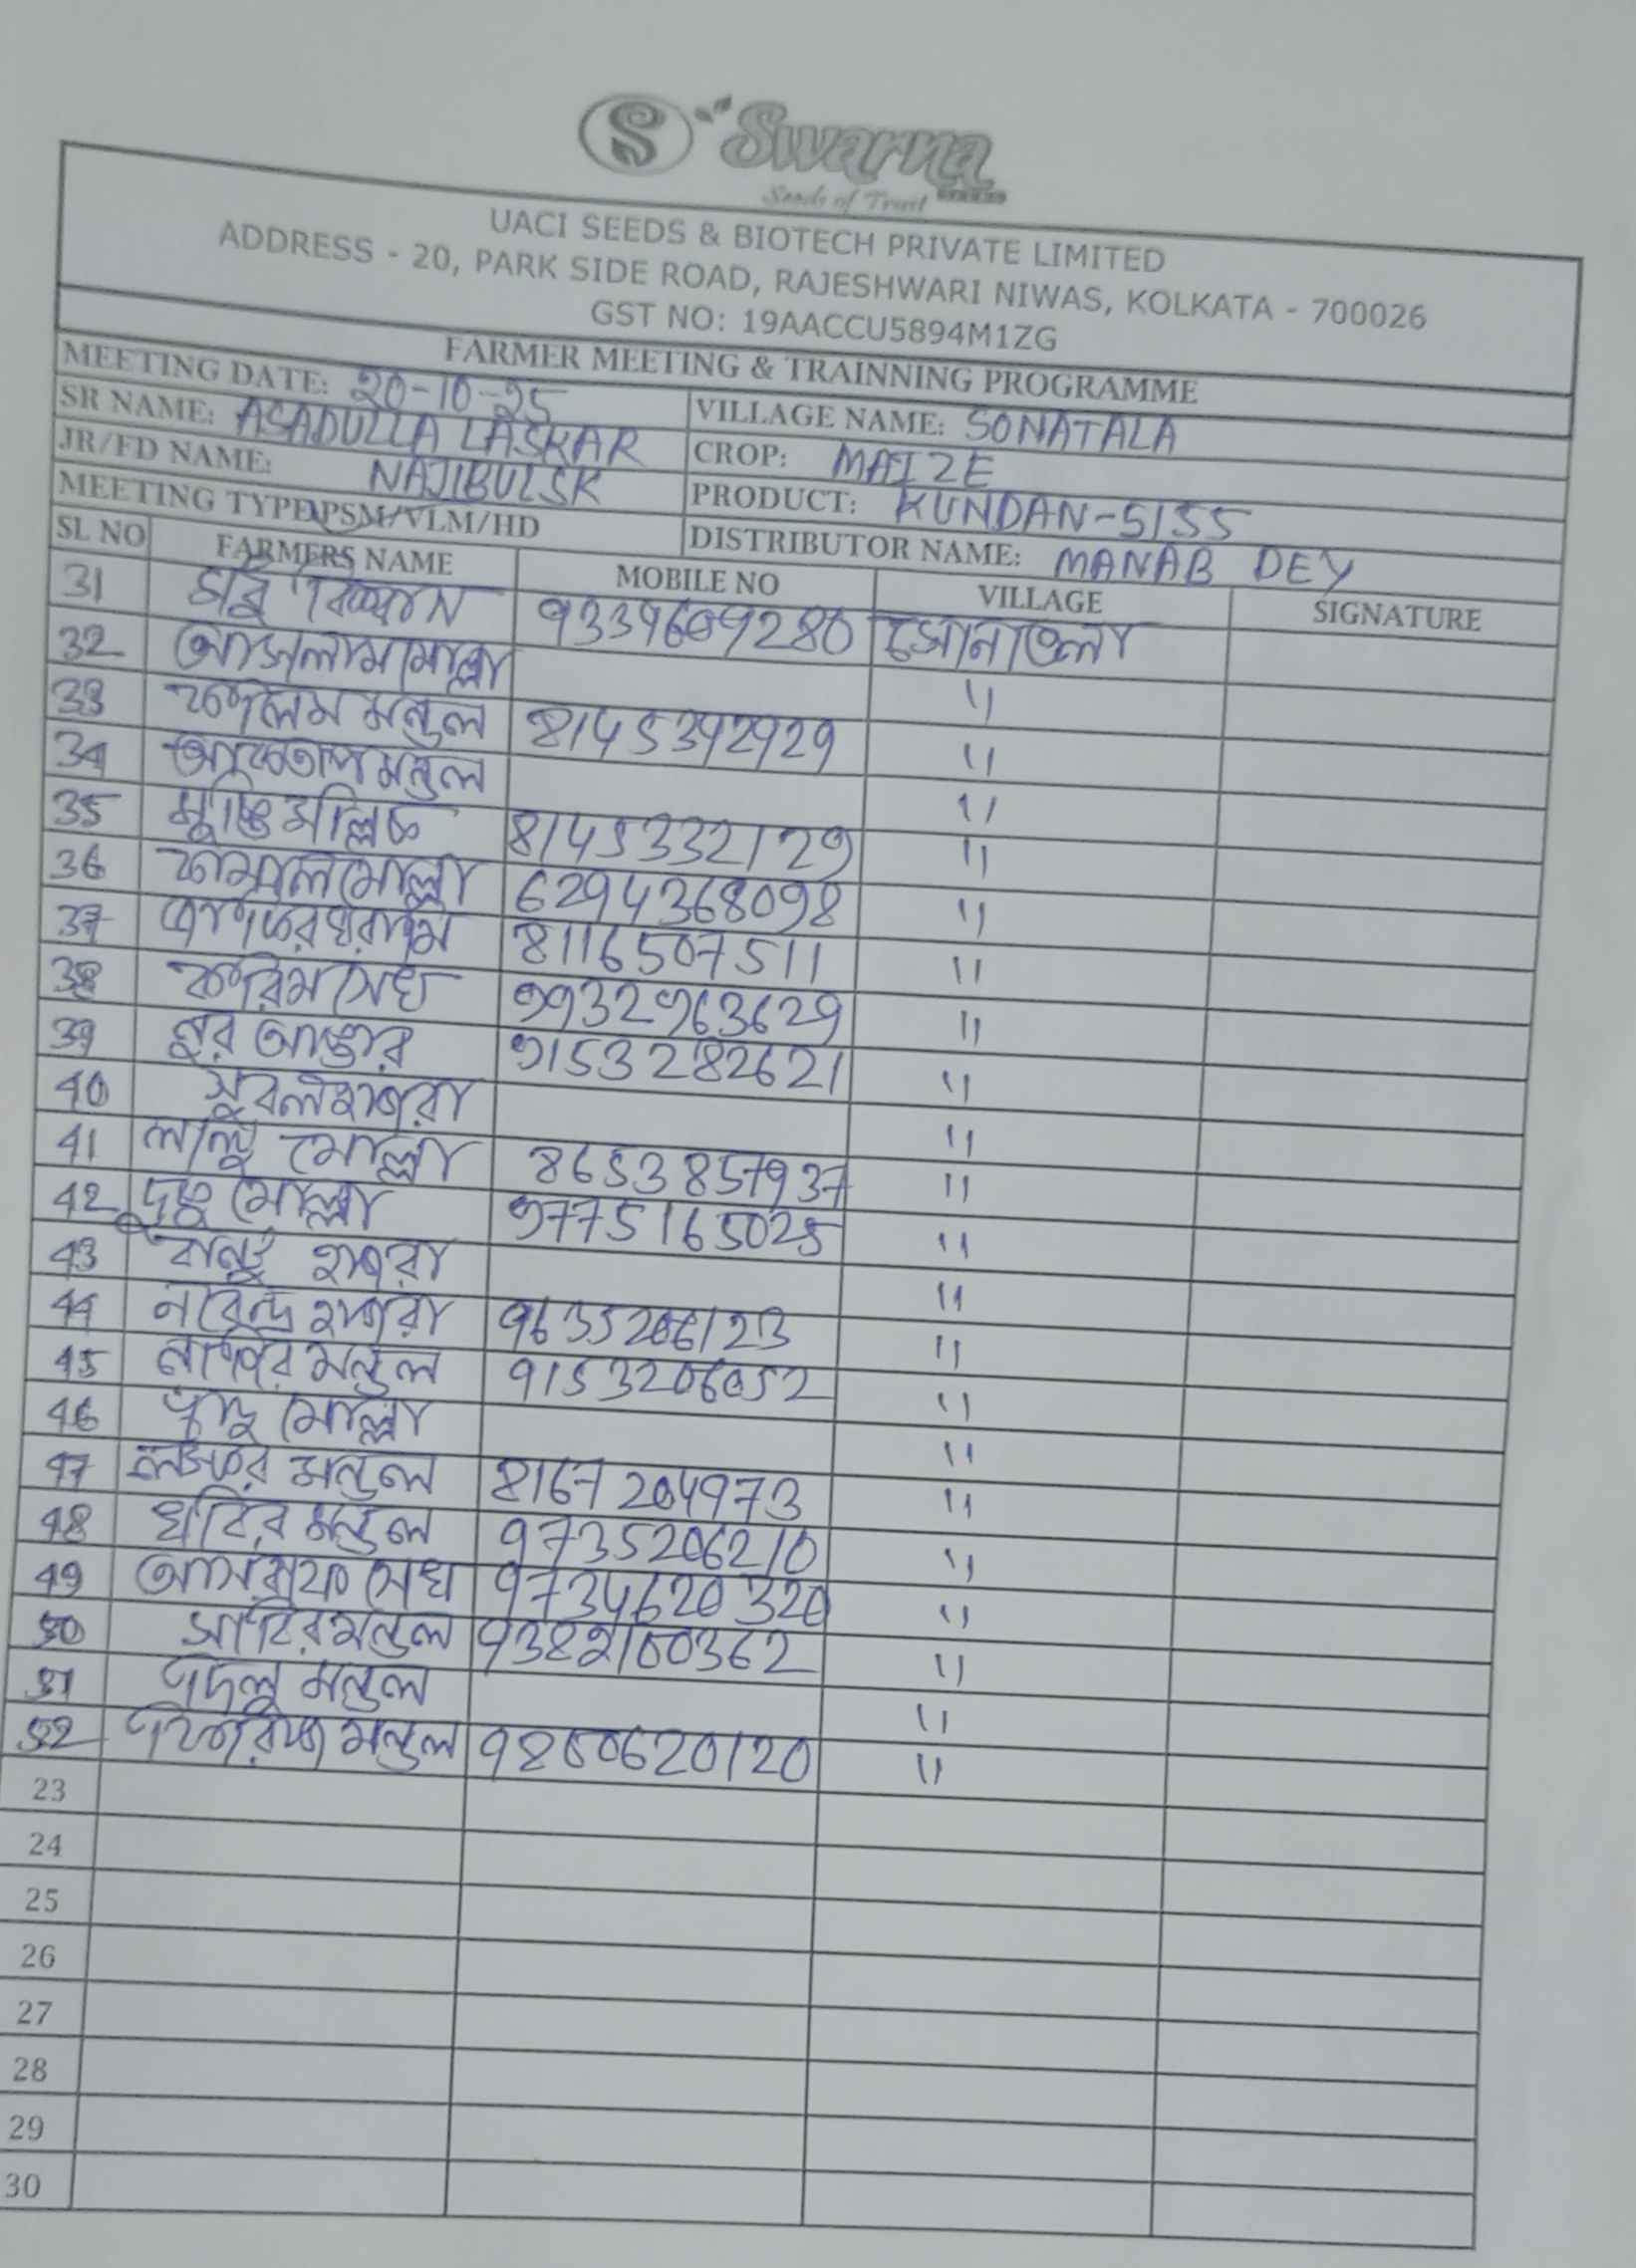 Swarna
Seeds of Trust
UACI SEEDS & BIOTECH PRIVATE LIMITED
ADDRESS - 20, PARK SIDE ROAD, RAJESHWARI NIWAS, KOLKATA - 700026
GST NO: 19AACCU5894M1ZG
FARMER MEETING & TRAINNING PROGRAMME
MEETING DATE: 20-10-25 VILLAGE NAME: SONATALA
SR NAME: ASADULLA LASKAR CROP: MAIZE
JR/FD NAME: NAJIBUL SK PRODUCT: KUNDAN-5155
MEETING TYPE PSM/VLM/HD DISTRIBUTOR NAME: MANAB DEY
SL NO FARMERS NAME MOBILE NO VILLAGE SIGNATURE
31 সোনাতলা
32 আসলাম মোল্লা "
33 মন্ডুল 8145392929 "
34 মন্ডুল "
35 মল্লিক 8145332129 "
36 মোল্লা 6294368098 "
37 8116507511 "
38 করিম সেখ 9932963629 "
39 নুর আক্তার 9153282621 "
40 সুবল হাজরা "
41 লালু মোল্লা 8653857937 "
42 মোল্লা 9775165025 "
43 হাজরা "
44 নরেন্দ্র হাজরা 9635206123 "
45 মন্ডুল 9153206052 "
46 মোল্লা "
47 মন্ডুল 8167204973 "
48 মন্ডুল 9735206210 "
49 সেখ 9734620320 "
50 সাবির মন্ডুল 9382100362 "
51 মন্ডুল "
52 মন্ডুল 9860620120 "
23
24
25
26
27
28
29
30